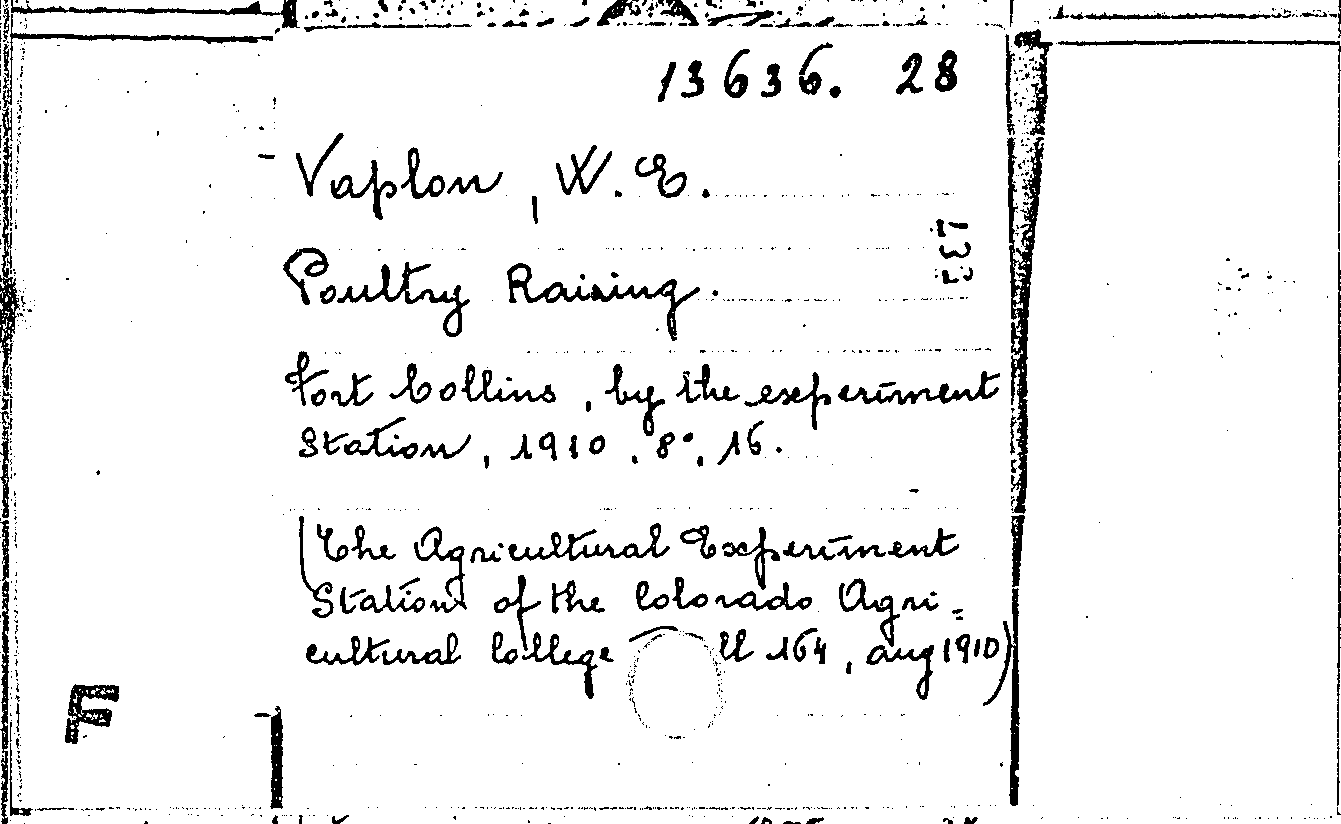 13636. 28
Vaplon, W. E.
337
Poultry Raising.
Fort Collins, by the experiment
Station, 1910. 8°, 16.
(The Agricultural Experiment
Station of the Colorado Agri=
cultural College ll 164, aug 1910)
F